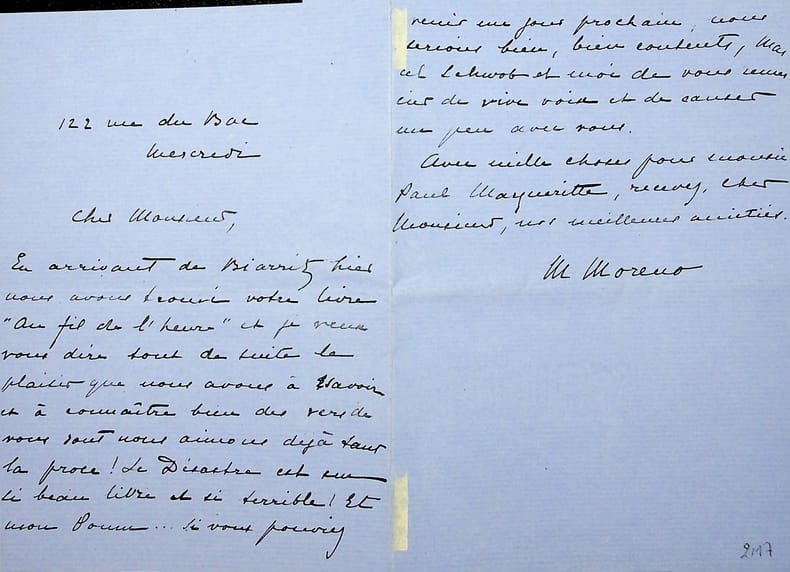 122 rue du Bac
Mercredi
Cher Monsieur,
En arrivant de Biarritz hier
nous avons trouvé votre livre
"Au fil de l'heure" et je veux
vous dire tout de suite le
plaisir que nous avons à savoir
et à connaître bien des vers de
vous dont nous aimons dejà tant
la proce! Le Désastre est un
si beau livre et si terrible! Et
mon Poum... si vous pouviez
venir un jour prochain, nous
serions bien, bien contents, Mar
cel Schwob et moi de vous remer
cier de vive voix et de causer
un peu avec vous.
Avec mille choses pour monsieur
Paul Margueritte, recevez, cher
Monsieur, nos meilleures amitiés.
M Moreno
2117